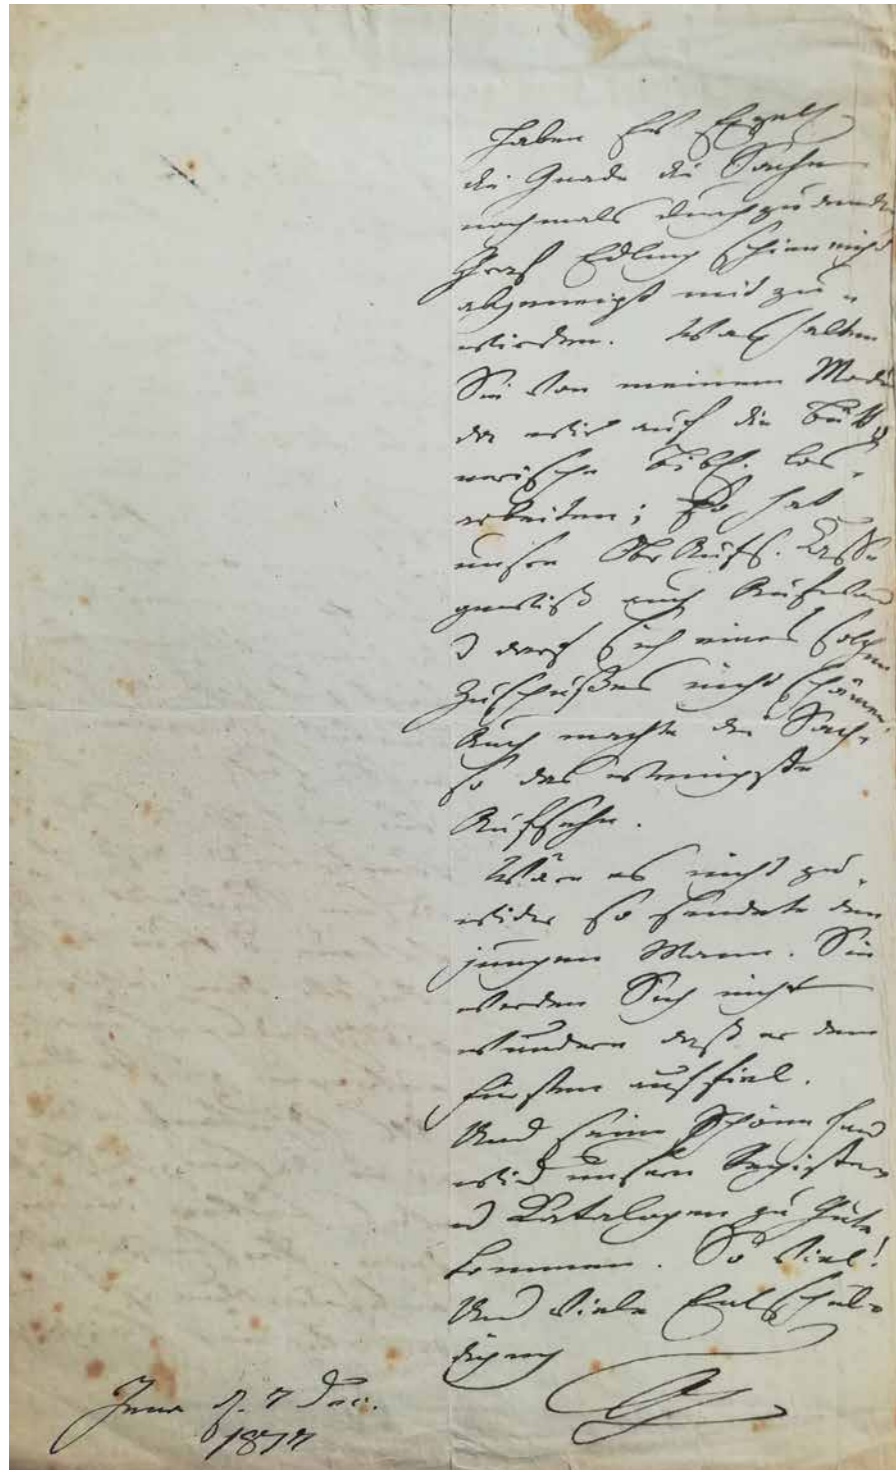 Haben Ew Exzell.
die Gnade die Sache
nochmals durchzudencken
Graf Edling schien nicht
abgeneigt mit zu
wircken. Was halten
Sie von meinem
da wir auf die Bütt
nerische Bibl. los
arbeiten; so hat
unsre Ob Aufs. Casse
gewiss auch
darf sich eines solchen
Zuschußes nicht schämen.
Auch machte die Sache
so das wenigste
Aufsehn.
Wäre es nicht zu
wider so sendete den
jungen Mann. Sie
werden Sich nicht
wundern daß er dem
Fürsten auffiel.
Und seine schöne Hand
wird unsern Registern
u Catalogen zu Gute
kommen. So viel!
Und viele Entschul
digung
G
Jena d. 7 Dec.
1817